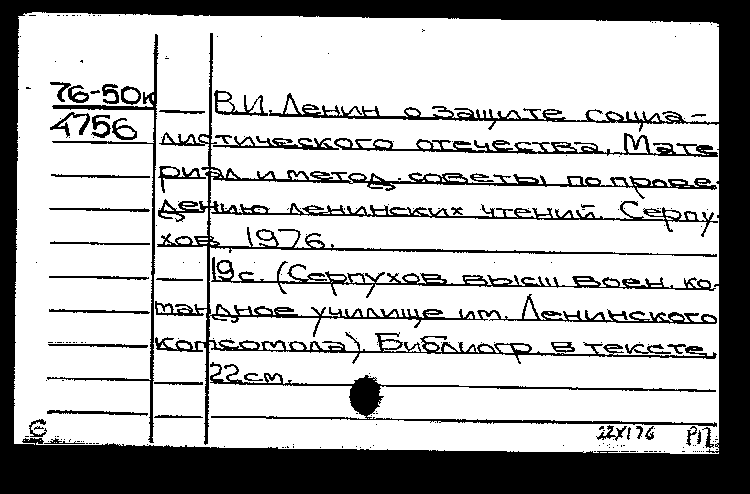 76-50к
4756
В.И. Ленин о защите социа-
листического отечества. Мате-
риал и метод. советы по прове-
дению ленинских чтений. Серпу-
хов, 1976.
19с. (Серпухов. высш. воен. ко-
мандное училище им. Ленинского
комсомола). Библиогр. в тексте.
22см.
22XI76 РП